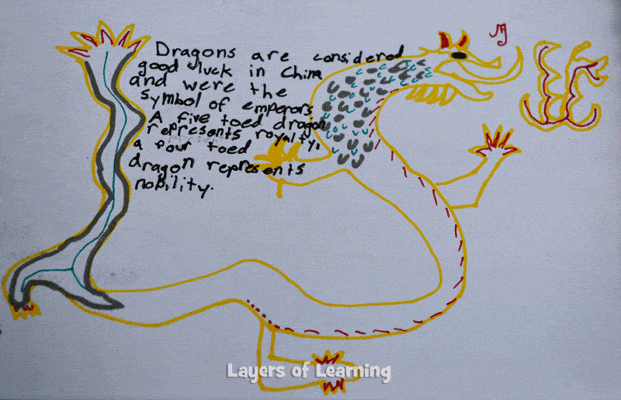 Dragons are considered
good luck in China
and were the
symbol of emperors
A five toed dragon
represents royalty,
a four toed
dragon represents
nobility.
Layers of Learning